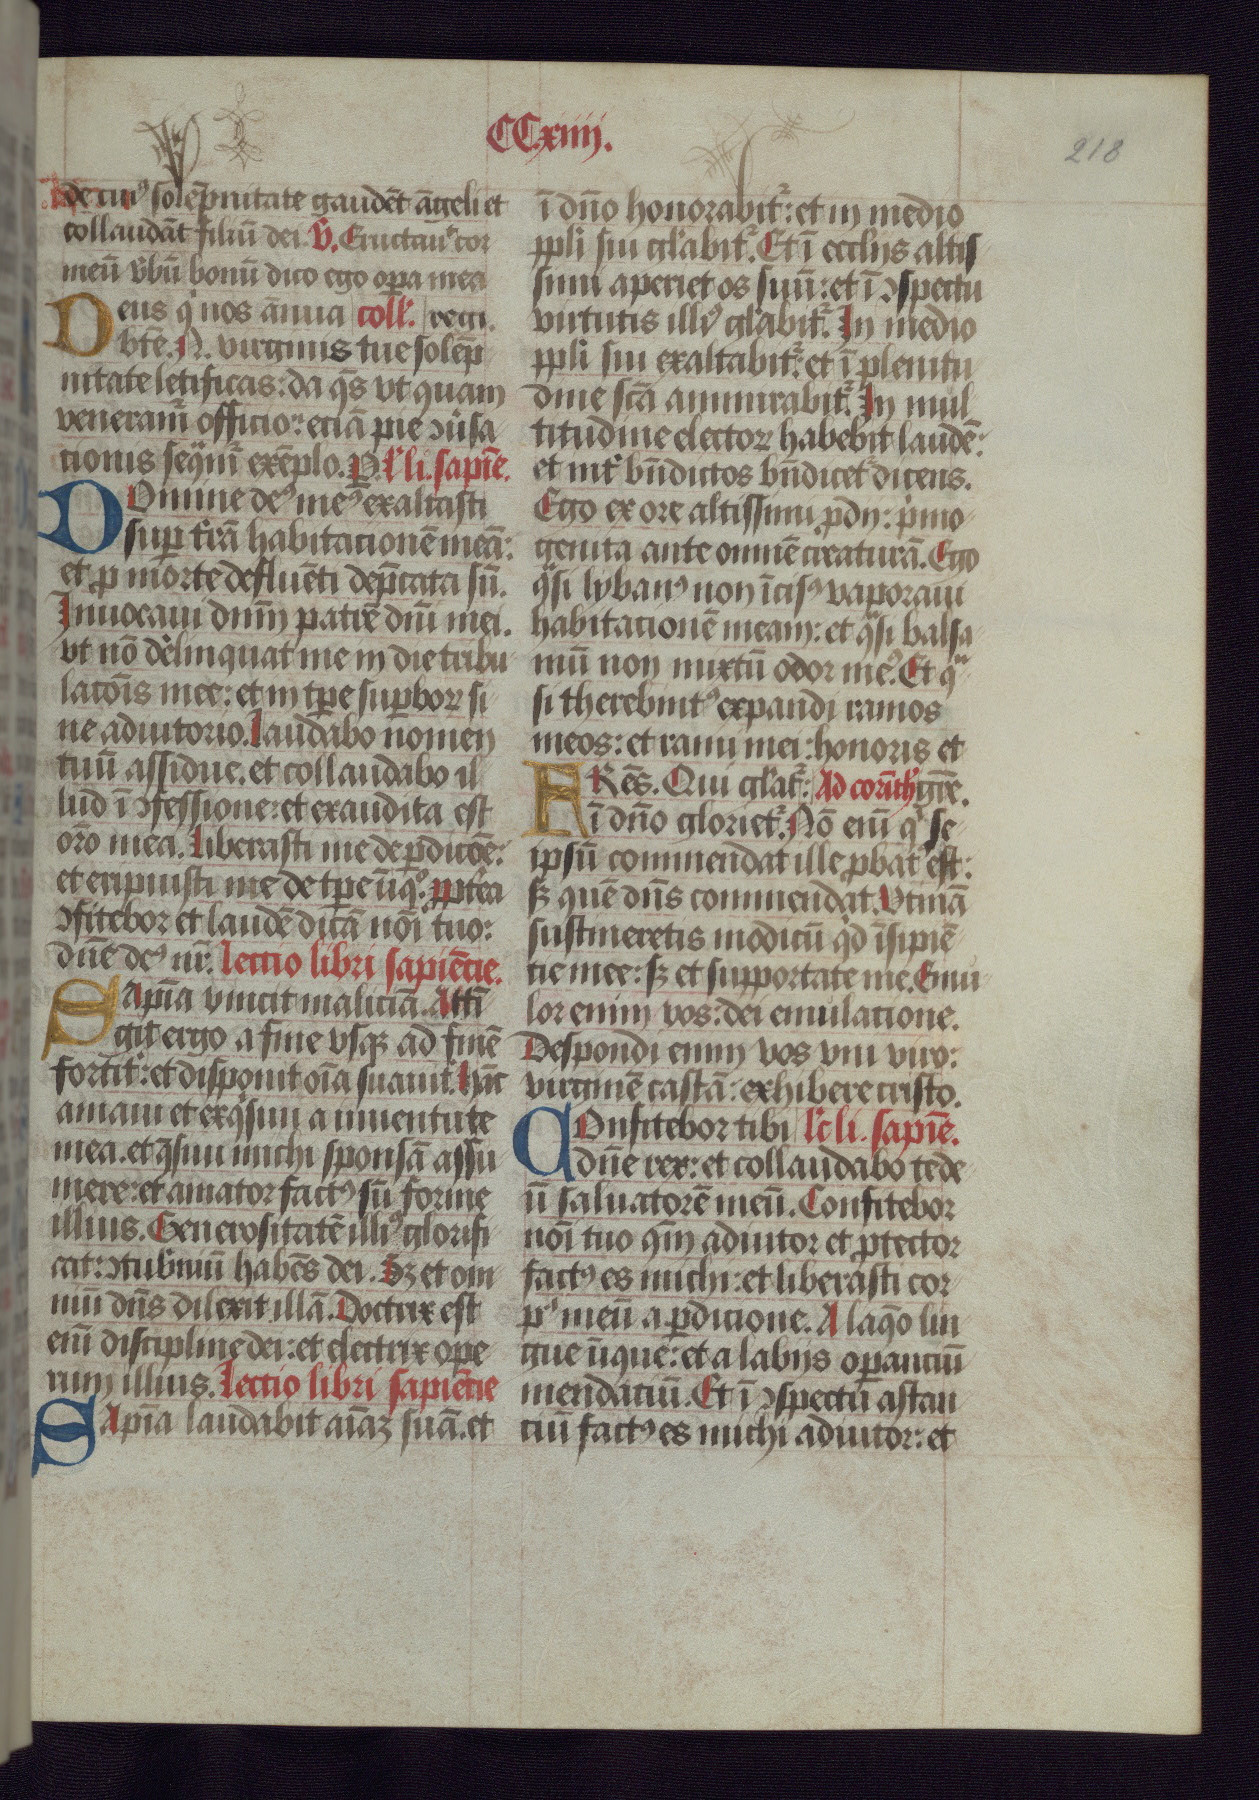 CCxiiij.
218
de cuiꝰ solēpnitate gaudēt āgeli et
collaudāt filiū dei. V̄. Eructauᵗ cor
meū v̄bū bonū dico ego oꝑa mea
Deus qͥ nos ānua coll'. recti.
bt̄e. N. virginis tue solēp
nitate letificas: da q̄s vt quam
veneramᷣ officio: eciā pie ↄūsa
tionis seqͣmᷣ exēplo. P. l'c̄ li. sapiē.
DOmine deꝰ meꝰ exaltasti
suꝑ t'rā habitacionē meā:
et ꝓ morte defluēti dep̄cata sū.
Inuocaui dn̄m patrē dn̄i mei.
vt nō delinquat me in die tribu
lacōis mee: et in tꝑe suꝑboꝝ si
ne adiutorio. Laudabo nomen
tuū assidue. et collaudabo il
lud ī ↄfessione: et exaudita est
or̄o mea. Liberasti me de ꝑdicōe:
et eripuisti me de tꝑe īiqͦ. ꝓpt'ea
ↄfitebor et laudē dicā nōi tuo:
dn̄e deꝰ nr̄. Lectio libri sapiēcie.
SApīa vincit maliciā. Attī
git ergo a fine vsqꝫ ad finē
fortit': et disponit oīa suauit'. Hāc
amaui et exqͥsiui a iuuentute
mea. et q̄siui michi sponsā assu
mere: et amator factꝰ sū forme
illius. Generositatē illiꝰ glorifi
cat: ↄtub'niū habēs dei. Sꝫ et om
niū dn̄s dilexit illā. Doctrix est
eniᷓ discipline dei: et electrix ope
rum illius. Lectio libri sapiēcie
SApīa laudabit aīaꝫ suā. et
ī dn̄o honorabitᷣ: et in medio
ppl̄i sui gl'abitᷣ. Et ī eccl'ijs altis
simi aperiet os suū: et ī ↄspectu
virtutis illiꝰ gl'abitᷣ. In medio
ppl̄i sui exaltabitᷣ: et ī plenitu
dine sc̄ā ammirabitᷣ. In mul
titudine electoꝝ habebit laudē:
et int' bn̄dictos bn̄dicetᷣ dicens.
Ego ex ore altissimi ꝓdij: pͥmo
genita ante omnē creaturā. Ego
qͣsi lybanꝰ non īcisꝰ vaporaui
habitacionē meam: et qͣsi balsa
mū non mixtū odor meꝰ. Et qͣ
si therebintꝰ expandi ramos
meos: et rami mei: honoris et
FRēs. Qui gl'atᷣ: Ad corīth' grē.
ī dn̄o glorietᷣ. Nō eniᷓ qͥ se
ipsū commendat ille ꝓbatꝰ est:
sꝫ quē dn̄s commendat. Vtinā
sustineretis modicū qͥd īsipiē
tie mee: sꝫ et supportate me. Emu
lor enim vos: dei emulatione.
Despondi enim vos vni viro:
virginē castā: exhibere cristo.
COnfitebor tibi l'c̄ li. sapiē.
dn̄e rex: et collaudabo te de
ū saluatorē meū. Confitebor
nōi tuo qm̄ adiutor et ꝓtector
factꝰ es michi: et liberasti cor
pꝰ meū a ꝑdicione. A laq̄o lin
gue īique: et a labijs oꝑanciū
mendaciū. Et ī ↄspectu astan
ciū factꝰ es michi adiutor: et